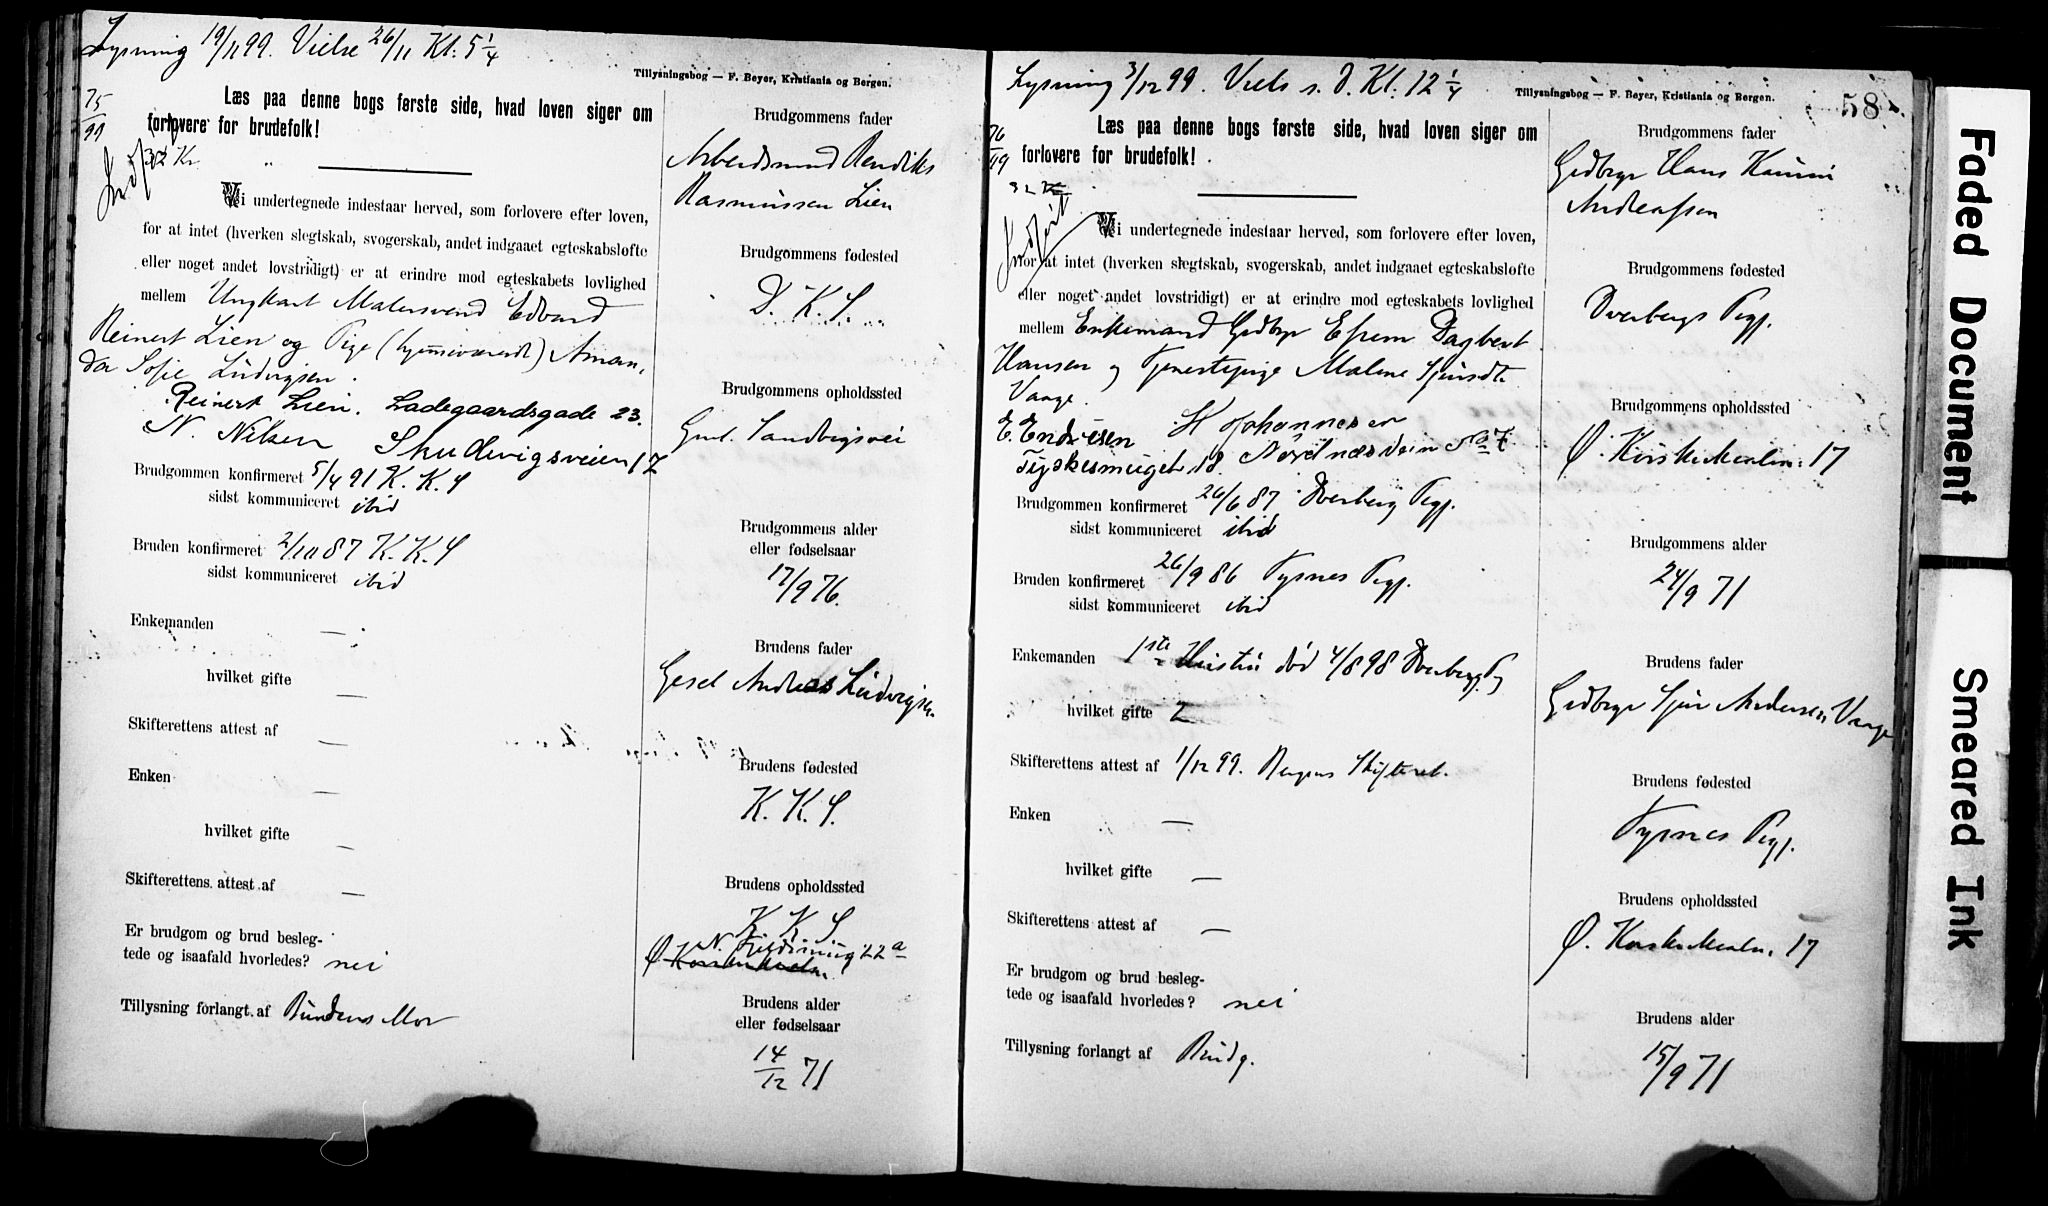 Lysning 19/11 99. Vielse 26/11 Kl: 5 1/4
Tillysningsbog — F. Beyer, Kristiania og Bergen.
75/99
Læs paa denne bogs første side, hvad loven siger om
forlovere for brudefolk!
32 Kr
Indført
Vi undertegnede indestaar herved, som forlovere efter loven,
for at intet (hverken slegtskab, svogerskab, andet indgaaet egteskabsløfte
eller noget andet lovstridigt) er at erindre mod egteskabets lovlighed
mellem Ungkarl Malersvend Edvard
Reinert Lien og Pige (hjemmeværende) Aman-
da Sofie Ludvigsen.
Reinert Lien. Ladegaardsgade 23.
N. Nilsen Skudevigsveien 17
Brudgommen konfirmeret 5/4 91 K. K. S
sidst kommuniceret ibid
Bruden konfirmeret 2/10 87 K. K. S
sidst kommuniceret ibid
Enkemanden —
hvilket gifte —
Skifterettens attest af —
Enken —
hvilket gifte —
Skifterettens attest af —
Er brudgom og brud besleg-
tede og isaafald hvorledes? nei
Tillysning forlangt af Brudens Mor
Brudgommens fader
Arbeidsmand Rendik
Rasmussen Lien
Brudgommens fødested
D. K. S.
Brudgommens opholdssted
Sandvigsvei
Brudgommens alder
eller fødselsaar
17/9 76.
Brudens fader
Gesel Andreas Ludvigsen
Brudens fødested
K. K. S.
Brudens opholdssted
K K S
N. 22 a
Ø. Korskirkealm.
Brudens alder
eller fødselsaar
14/12 71
Lysning 3/12 99. Viels s. D. Kl. 12 1/4
Tillysningsbog — F. Beyer, Kristiania og Bergen.
58
76/99
Læs paa denne bogs første side, hvad loven siger om
forlovere for brudefolk!
32 Kr
Indført
Vi undertegnede indestaar herved, som forlovere efter loven,
for at intet (hverken slegtskab, svogerskab, andet indgaaet egteskabsløfte
eller noget andet lovstridigt) er at erindre mod egteskabets lovlighed
mellem Enkemand Gedbgr Efrem Dagbert
Hansen og Tjenestepige Malene Sjursdt.
Vaage.
E. Endresen H Johannesen
Tyskesmuget 18. Nordnæsvein No 7
Brudgommen konfirmeret 26/6 87 Dverberg Pgj.
sidst kommuniceret ibid
Bruden konfirmeret 26/9 86 Tysnes Pgj.
sidst kommuniceret ibid
Enkemanden 1ste Hustru død 4/8 98 Dverberg Pgj
hvilket gifte 2
Skifterettens attest af 1/12 99. Bergens Skifteret.
Enken —
hvilket gifte —
Skifterettens attest af —
Er brudgom og brud besleg-
tede og isaafald hvorledes? nei
Tillysning forlangt af Brudg.
Brudgommens fader
Gedbgr Hans
Andreassen
Brudgommens fødested
Dverbergs Pgj.
Brudgommens opholdssted
Ø. Korskirkealm. 17
Brudgommens alder
24/9 71
Brudens fader
Gedbgr Sjur Andersen Vaage
Brudens fødested
Tysnes Pgj.
Brudens opholdssted
Ø. Korskirkealm. 17
Brudens alder
15/9 71
Faded Document
Smeared Ink